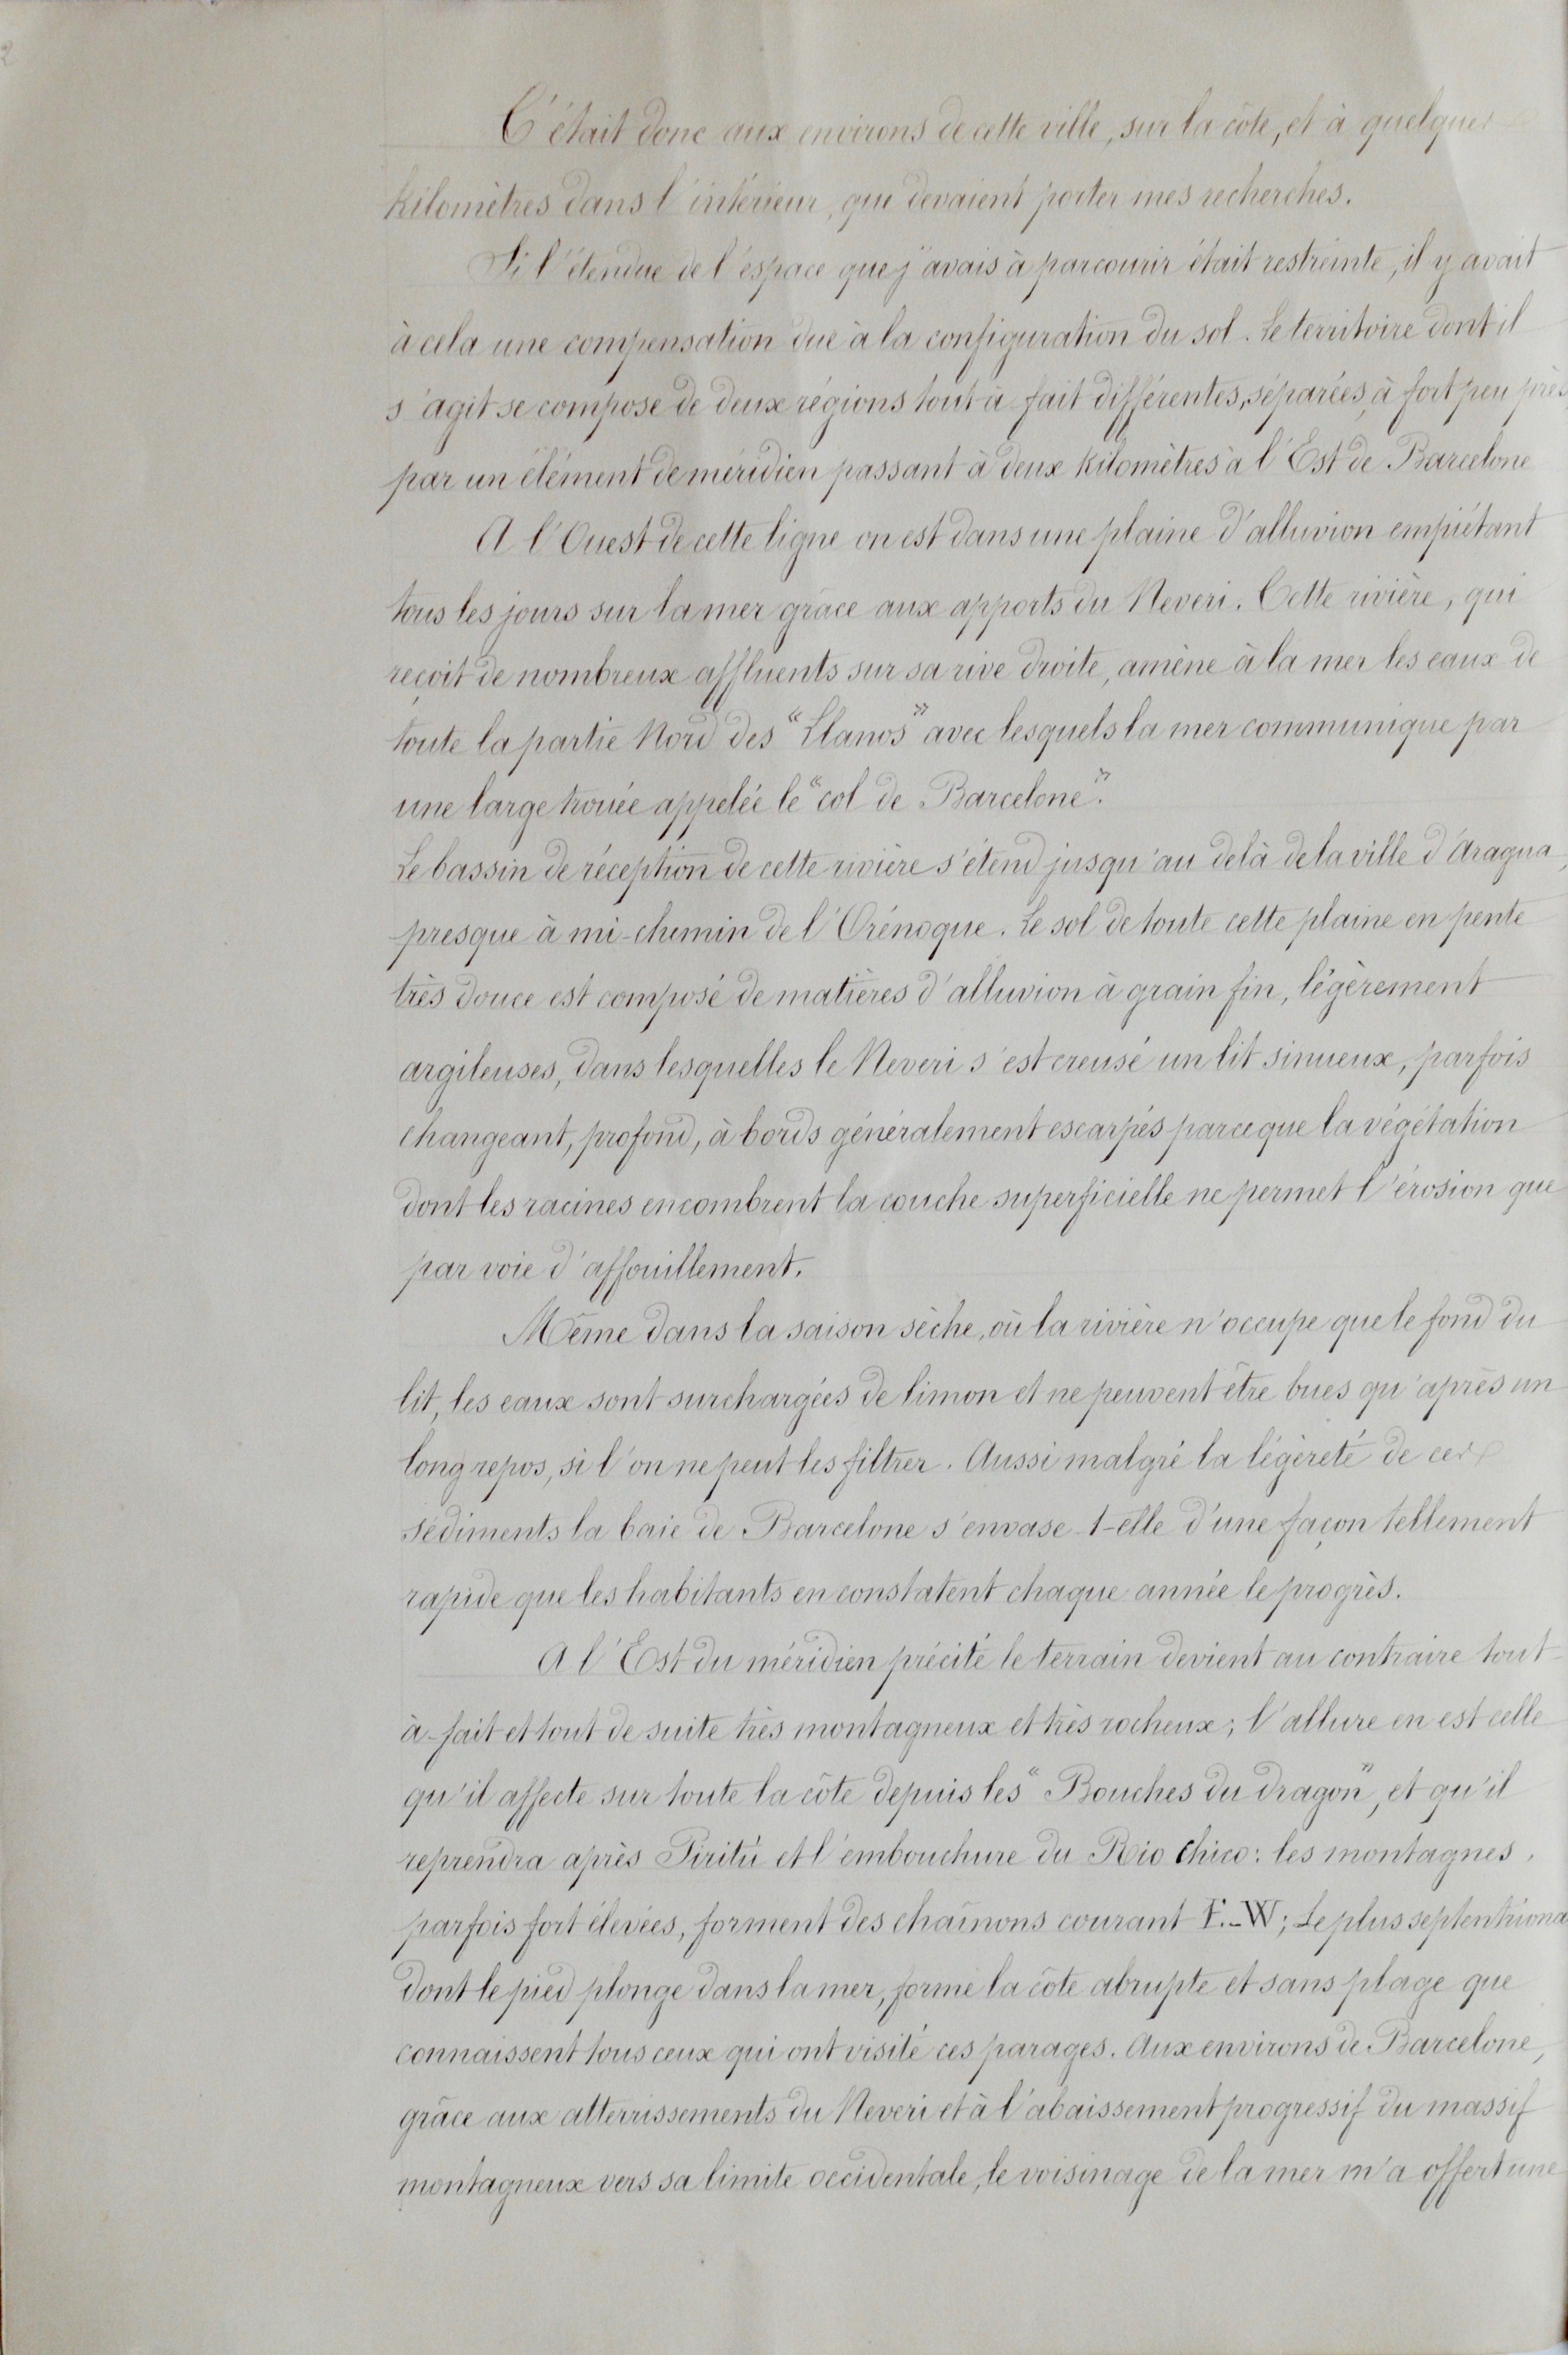 2
C'était donc aux environs de cette ville, sur la côte, et à quelques
kilomètres dans l'intérieur, que devaient porter mes recherches.
Si l'étendue de l'éspace que j'avais à parcourir était restreinte, il y avait
à cela une compensation due à la configuration du sol. Le territoire dont il
s'agit se compose de deux régions tout à fait différentes, séparées, à fort peu près
par un élément de méridien passant à deux kilomètres à l'Est de Barcelone
A l'Ouest de cette ligne on est dans une plaine d'alluvion empiétant
tous les jours sur la mer grâce aux apports du Neveri. Cette rivière, qui
reçoit de nombreux affluents sur sa rive droite, amène à la mer les eaux de
toute la partie Nord des "Llanos" avec lesquels la mer communique par
une large trouée appelée le "col de Barcelone".
Le bassin de réception de cette rivière s'étend jusqu'au delà de la ville d'Aragua,
presque à mi-chemin de l'Orénoque. Le sol de toute cette plaine en pente
très douce est composé de matières d'alluvion à grain fin, légèrement
argileuses, dans lesquelles le Neveri s'est creusé un lit sinueux, parfois
changeant, profond, à bords généralement escarpés parceque la végétation
dont les racines encombrent la couche superficielle ne permet l'érosion que
par voie d'affouillement.
Même dans la saison sèche, où la rivière n'occupe que le fond du
lit, les eaux sont surchargées de limon et ne peuvent être bues qu'après un
long repos, si l'on ne peut les filtrer. Aussi malgré la légèreté de ces
sédiments la baie de Barcelone s'envase-t-elle d'une façon tellement
rapide que les habitants en constatent chaque année le progrès.
A l'Est du méridien précité le terrain devient au contraire tout-
à-fait et tout de suite très montagneux et très rocheux; l'allure en est celle
qu'il affecte sur toute la côte depuis les "Bouches du dragon", et qu'il
reprendra après Piritú et l'embouchure du Rio chico: les montagnes,
parfois fort élevées, forment des chaînons courant E.-W; Le plus septentriona
dont le pied plonge dans la mer, forme la côte abrupte et sans plage que
connaissent tous ceux qui ont visité ces parages. Aux environs de Barcelone,
grâce aux atterrissements du Neveri et à l'abaissement progressif du massif
montagneux vers sa limite occidentale, le voisinage de la mer m'a offert une